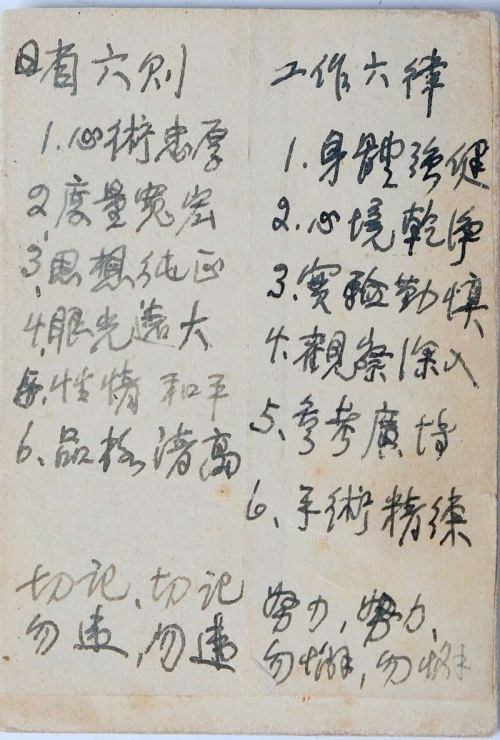 自省六则
1.心術忠厚
2.度量寬宏
3.思想纯正
4.眼光遠大
5.性情和平
6、品格清高
切记、切记
勿違,勿違
工作六律
1.身體強健
2.心境乾净
3.實驗勤慎
4.觀察深入
5、參考廣博
6、手術精练
努力,努力、
勿懈,勿懈